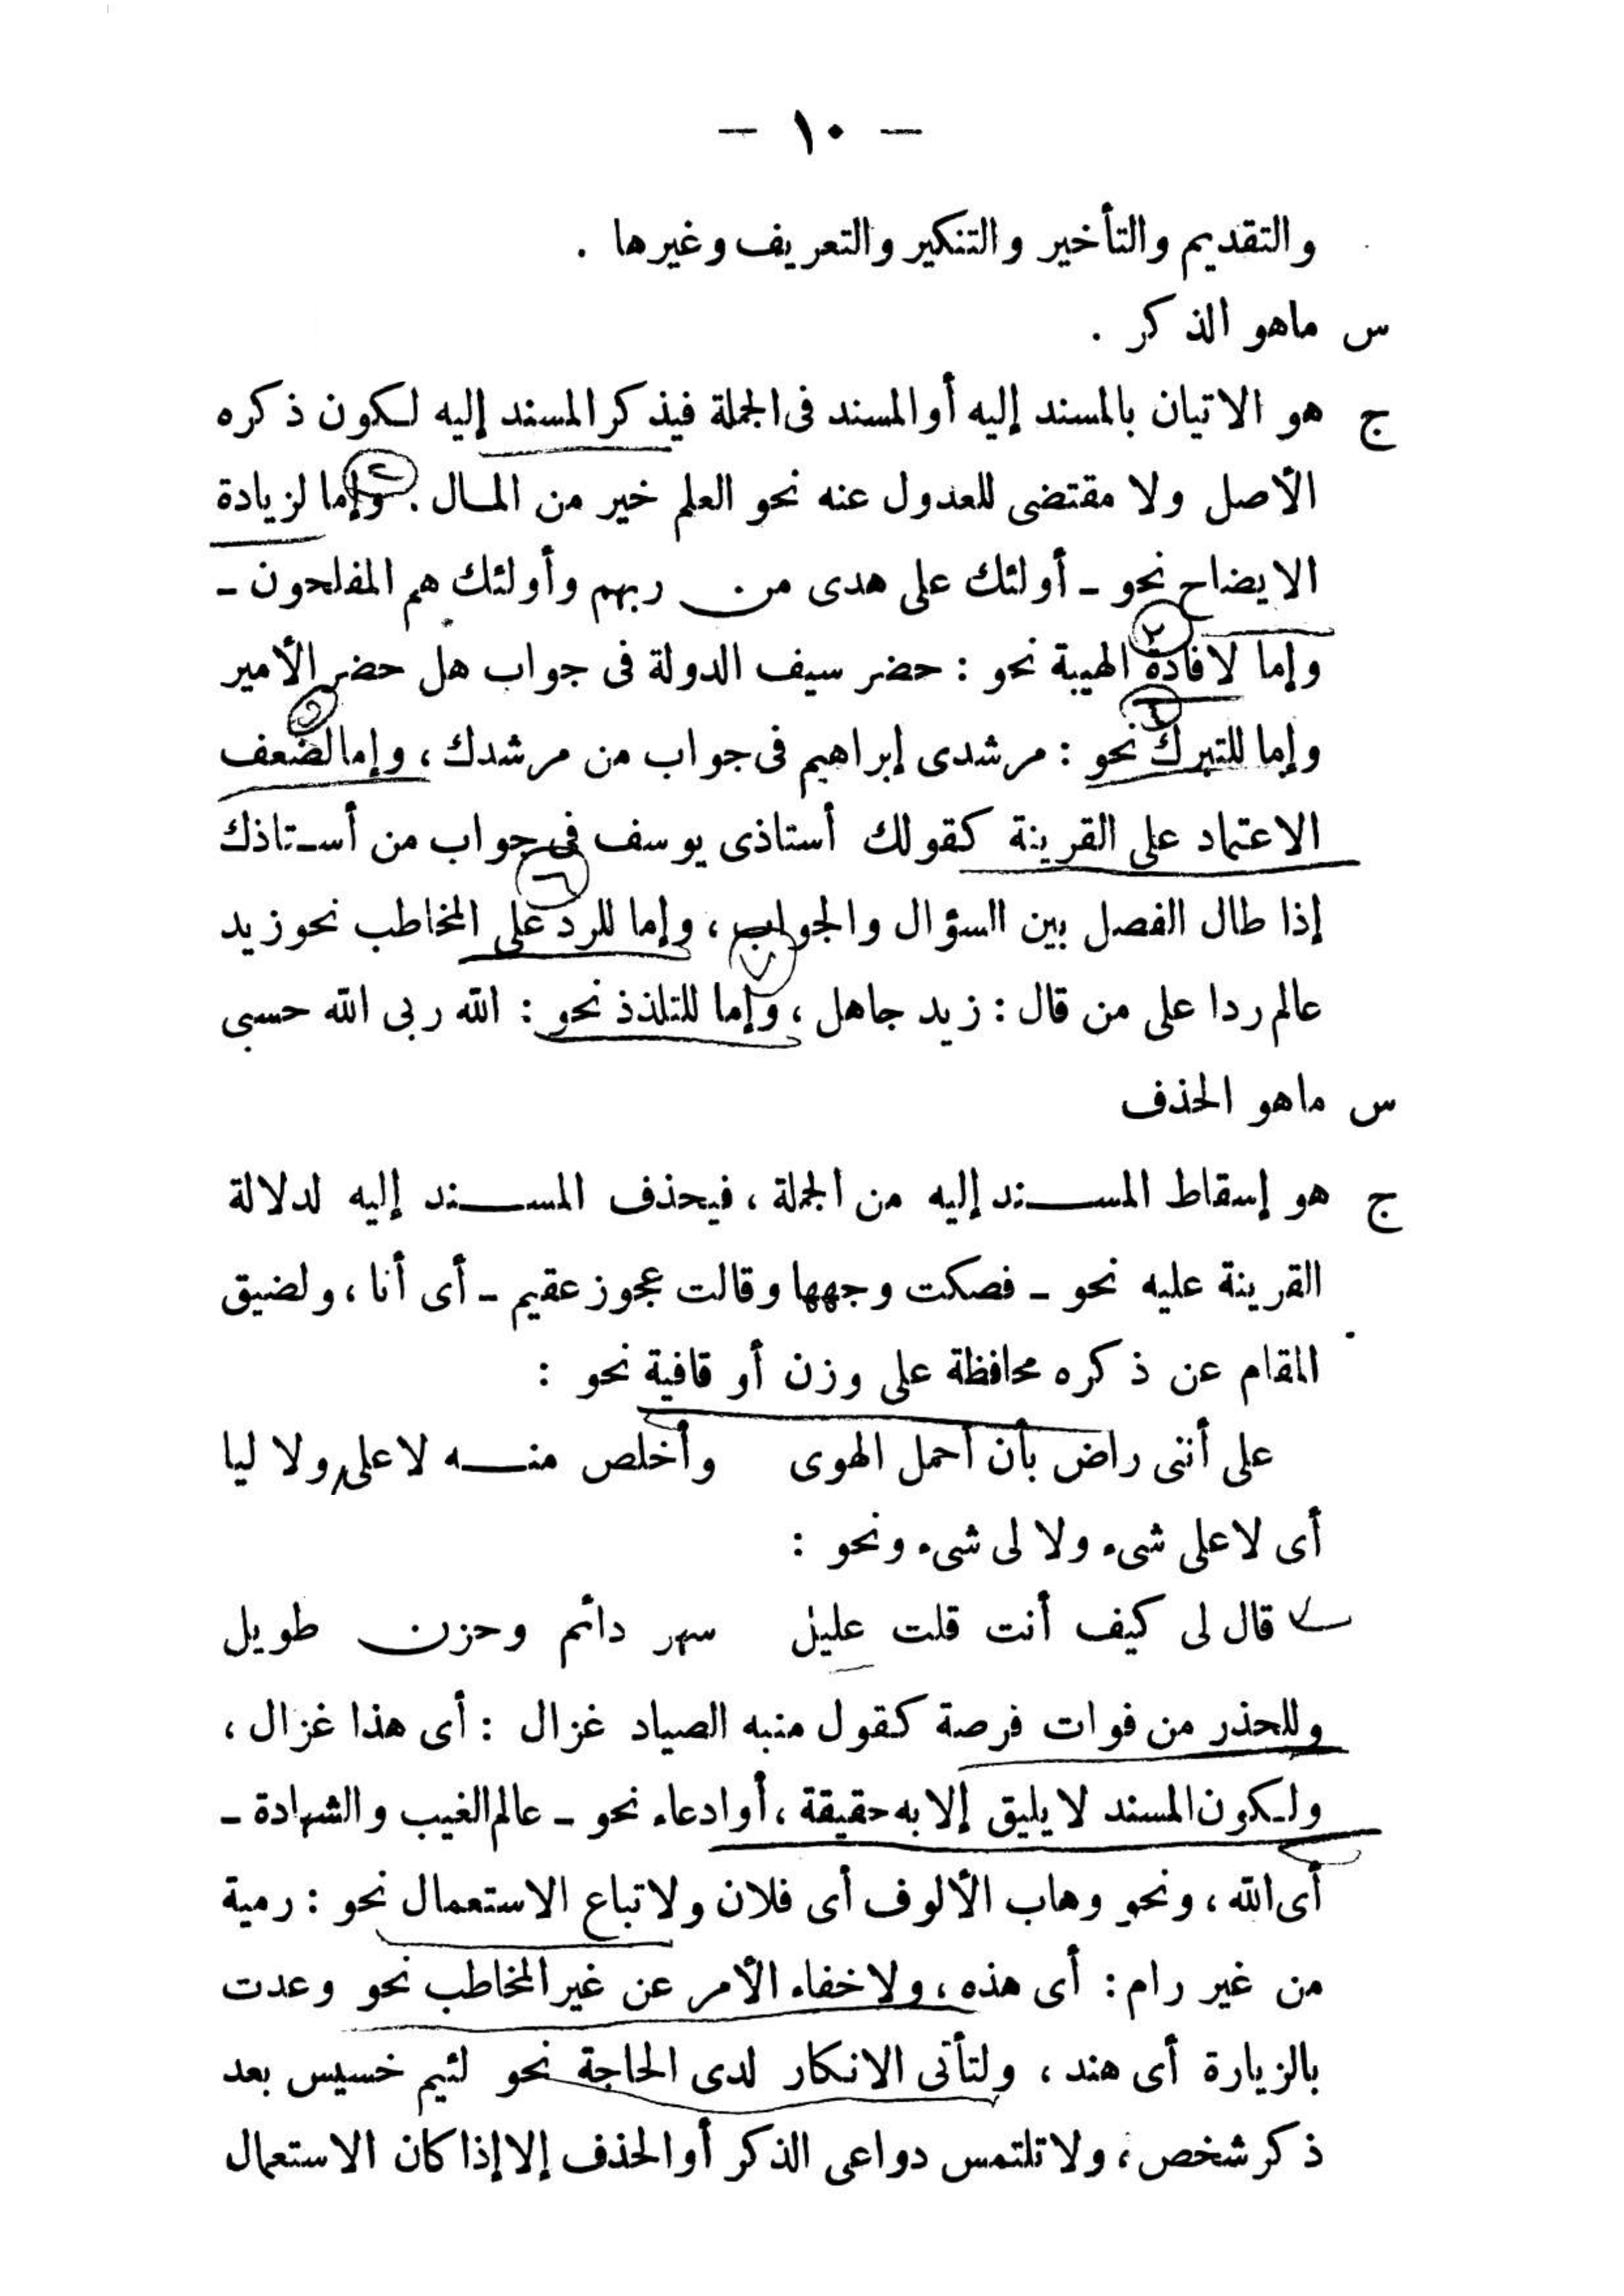 — ١٠ —
والتقديم والتأخير والتنكير والتعريف وغيرها .
س ماهو الذكر .
ج هو الاتيان بالمسند إليه أوالمسند فى الجملة فيذكر المسند إليه لكون ذكره
الأصل ولا مقتضى للعدول عنه نحو العلم خير من المال . وإما لزيادة
الايضاح نحو ـ أولئك على هدى من ربهم وأولئك هم المفلحون ـ
وإما لافادة الهيبة نحو : حضر سيف الدولة فى جواب هل حضر الأمير
وإما للتبرك نحو : مرشدى إبراهيم فى جواب من مرشدك ، وإما لضعف
الاعتماد على القرينة كقولك أستاذى يوسف فى جواب من أستاذك
إذا طال الفصل بين السؤال والجواب ، وإما للرد على المخاطب نحو زيد
عالم ردا على من قال : زيد جاهل ، وإما للتلذذ نحو : الله ربى الله حسبى
س ماهو الحذف
ج هو إسقاط المسند إليه من الجملة ، فيحذف المسند إليه لدلالة
القرينة عليه نحو ـ فصكت وجهها وقالت عجوز عقيم ـ أى أنا ، ولضيق
المقام عن ذكره محافظة على وزن أو قافية نحو :
على أننى راض بأن أحمل الهوى وأخلص منه لا على ولا ليا
أى لا على شىء ولا لى شىء ونحو :
قال لى كيف أنت قلت عليل سهر دائم وحزن طويل
وللحذر من فوات فرصة كقول منبه الصياد غزال : أى هذا غزال ،
ولكون المسند لا يليق إلا به حقيقة ، أو ادعاء نحو ـ عالم الغيب والشهادة ـ
أى الله ، ونحو وهاب الألوف أى فلان ولاتباع الاستعمال نحو : رمية
من غير رام : أى هذه ، ولاخفاء الأمر عن غير المخاطب نحو وعدت
بالزيارة أى هند ، ولتأتى الانكار لدى الحاجة نحو لئيم خسيس بعد
ذكر شخص ، ولا تلتمس دواعى الذكر أو الحذف إلا إذا كان الاستعمال